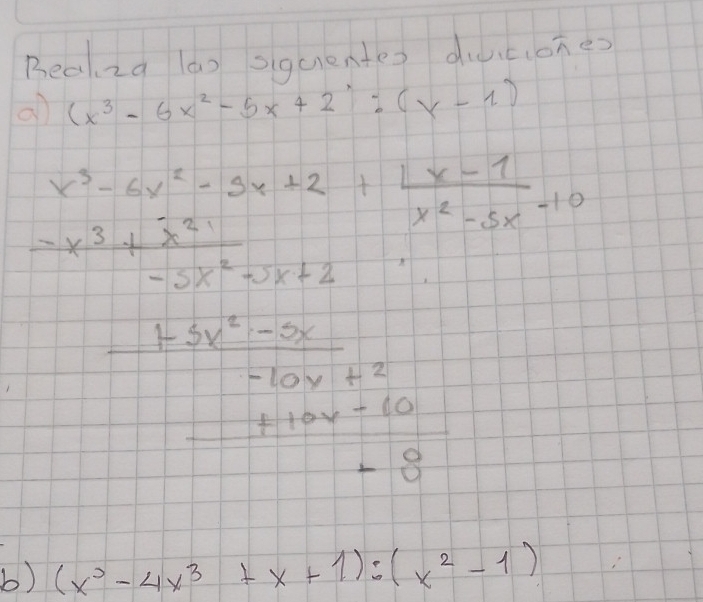 Realiza las siguientes diviciones
a) (x³ - 6x² - 5x + 2) : (x - 1)
x³ - 6x² - 5x + 2 + | x - 1
-x³ + x² x² - 5x - 10
-5x² - 5x + 2
+ 5x² - 5x
-10x + 2
+ 10x - 10
- 8
b) (x⁵ - 4x³ + x + 1) : (x² - 1)